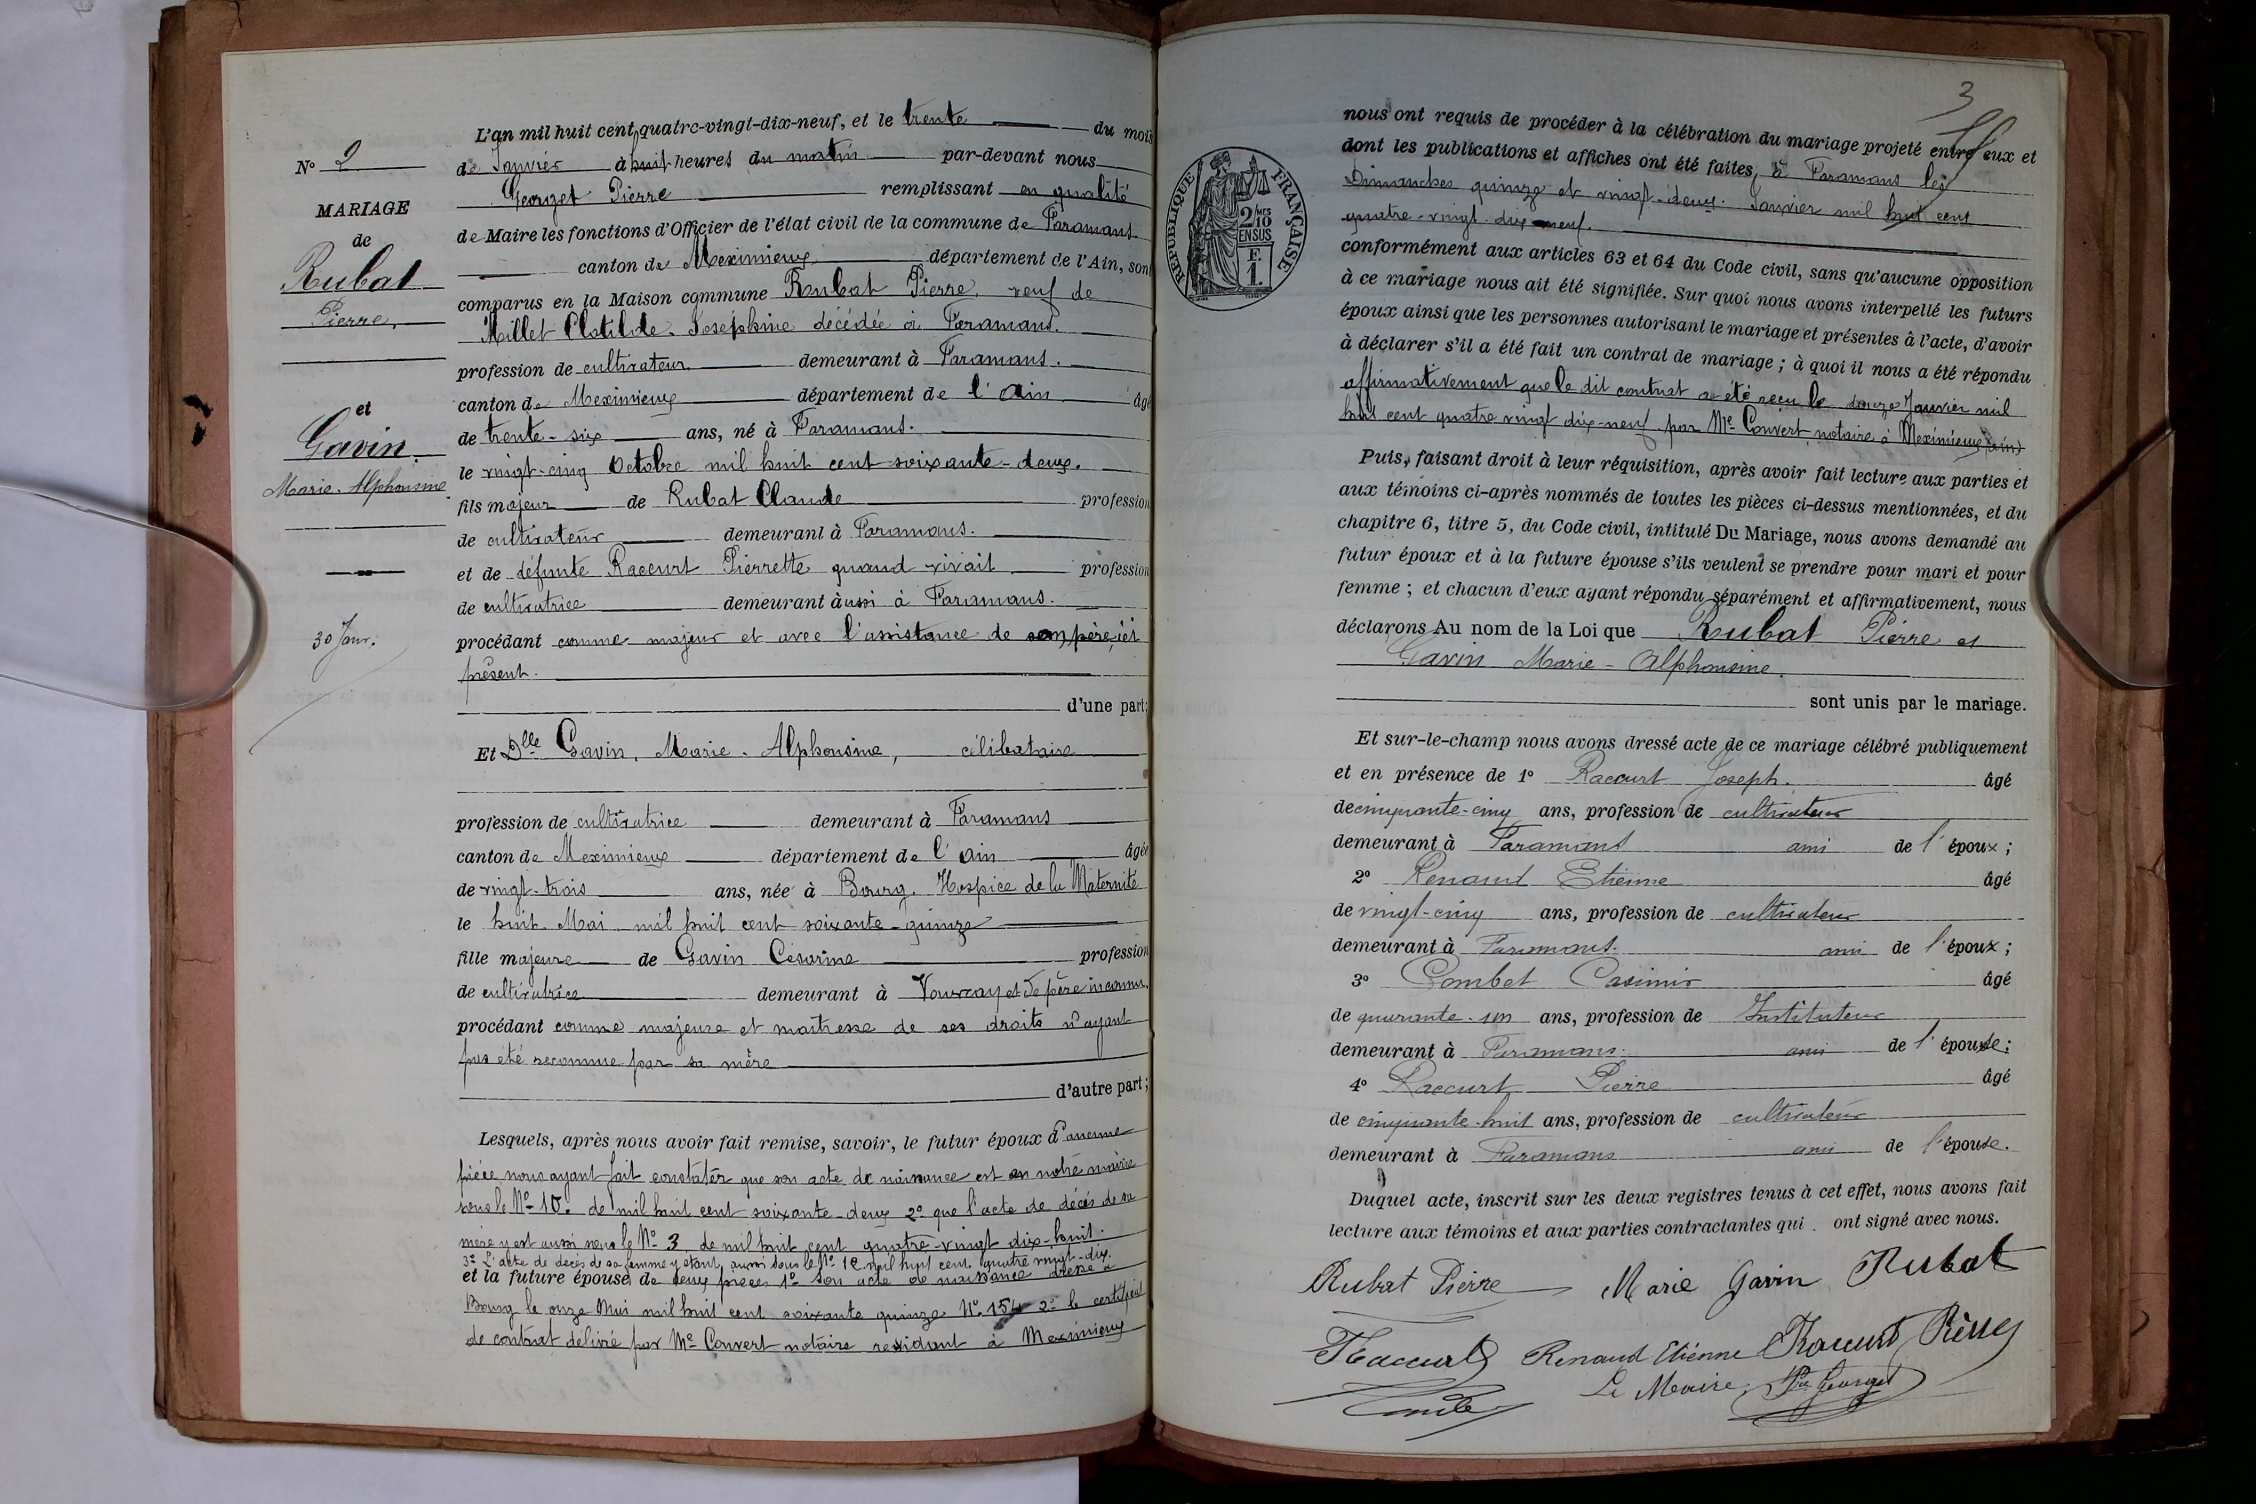 N° 2
MARIAGE
de
Rubat
Pierre,
et
Gavin
Marie-Alphonsine
30 Janv.
L'an mil huit cent quatre-vingt-dix-neuf, et le trente du mois
de Janvier à huit heures du matin par-devant nous
Georget Pierre remplissant en qualité
de Maire les fonctions d'Officier de l'état civil de la commune de Faramans
canton de Meximieux département de l'Ain, sont
comparus en la Maison commune Rubat Pierre, veuf de
Millet Clotilde-Josephine décédée à Faramans.
profession de cultivateur demeurant à Faramans.
canton de Meximieux département de l'Ain âgé
de trente-six ans, né à Faramans.
le vingt-cinq Octobre mil huit cent soixante-deux.
fils majeur de Rubat Claude profession
de cultivateur demeurant à Faramans.
et de défunte Raccurt Pierrette quand vivait profession
de cultivatrice demeurant aussi à Faramans.
procédant comme majeur et avec l'assistance de son père, ici
présent.
d'une part;
Et Dlle Gavin, Marie-Alphonsine, célibataire
profession de cultivatrice demeurant à Faramans
canton de Meximieux département de l'Ain âgée
de vingt-trois ans, née à Bourg. Hospice de la Maternité
le huit Mai mil huit cent soixante-quinze
fille majeure de Gavin Césarine profession
de cultivatrice demeurant à et de père inconnu.
procédant comme majeure et maîtresse de ses droits n'ayant
pas été reconnue par sa mère
d'autre part;
Lesquels, après nous avoir fait remise, savoir, le futur époux d'aucune
pièce nous ayant fait constater que son acte de naissance est en notre mairie
sous le N° 10. de mil huit cent soixante-deux 2° que l'acte de décès de sa
mère y est aussi sous le N° 3 de mil huit cent quatre-vingt dix-huit.
3° L'acte de décès de sa femme y étant aussi sous le N° 10 mil huit cent quatre vingt-dix.
et la future épouse de deux pièces 1° son acte de naissance dressé à
Bourg le onze Mai mil huit cent soixante quinze N° 154 2° le certificat
de contrat délivré par Me Convert notaire résidant à Meximieux
3
RÉPUBLIQUE FRANÇAISE
2/10 EN SUS
F.
1.
nous ont requis de procéder à la célébration du mariage projeté entre eux et
dont les publications et affiches ont été faites, à Faramans les
Dimanches quinze et vingt-deux Janvier mil huit cent
quatre-vingt-dix-neuf.
conformément aux articles 63 et 64 du Code civil, sans qu'aucune opposition
à ce mariage nous ait été signifiée. Sur quoi nous avons interpellé les futurs
époux ainsi que les personnes autorisant le mariage et présentes à l'acte, d'avoir
à déclarer s'il a été fait un contrat de mariage; à quoi il nous a été répondu
affirmativement que le dit contrat a été reçu le douze Janvier mil
huit cent quatre vingt dix-neuf par Me Convert notaire à Meximieux (Ain)
Puis, faisant droit à leur réquisition, après avoir fait lecture aux parties et
aux témoins ci-après nommés de toutes les pièces ci-dessus mentionnées, et du
chapitre 6, titre 5, du Code civil, intitulé Du Mariage, nous avons demandé au
futur époux et à la future épouse s'ils veulent se prendre pour mari et pour
femme; et chacun d'eux ayant répondu séparément et affirmativement, nous
déclarons Au nom de la Loi que Rubat Pierre et
Gavin Marie-Alphonsine.
sont unis par le mariage.
Et sur-le-champ nous avons dressé acte de ce mariage célébré publiquement
et en présence de 1° Raccurt Joseph. âgé
de cinquante-cinq ans, profession de cultivateur
demeurant à Faramans ami de l'époux;
2° Renaud Etienne âgé
de vingt-cinq ans, profession de cultivateur
demeurant à Faramans. ami de l'époux;
3° Gombet Casimir âgé
de quarante-un ans, profession de Instituteur
demeurant à Faramans. ami de l'épouse;
4° Raccurt Pierre âgé
de cinquante-huit ans, profession de cultivateur
demeurant à Faramans ami de l'épouse.
Duquel acte, inscrit sur les deux registres tenus à cet effet, nous avons fait
lecture aux témoins et aux parties contractantes qui ont signé avec nous.
Rubat Pierre Marie Gavin Rubat
Raccurt Renaud Etiénne Raccurt Pierre
Le Maire, Pre Georget